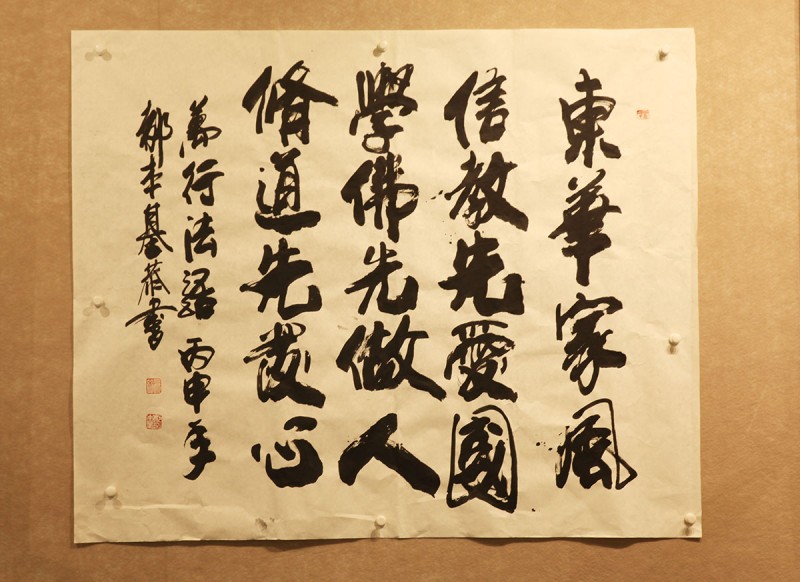 東華家風
信教先愛國
學佛先做人
脩道先發心
萬行法語 丙申年
郝本基恭書